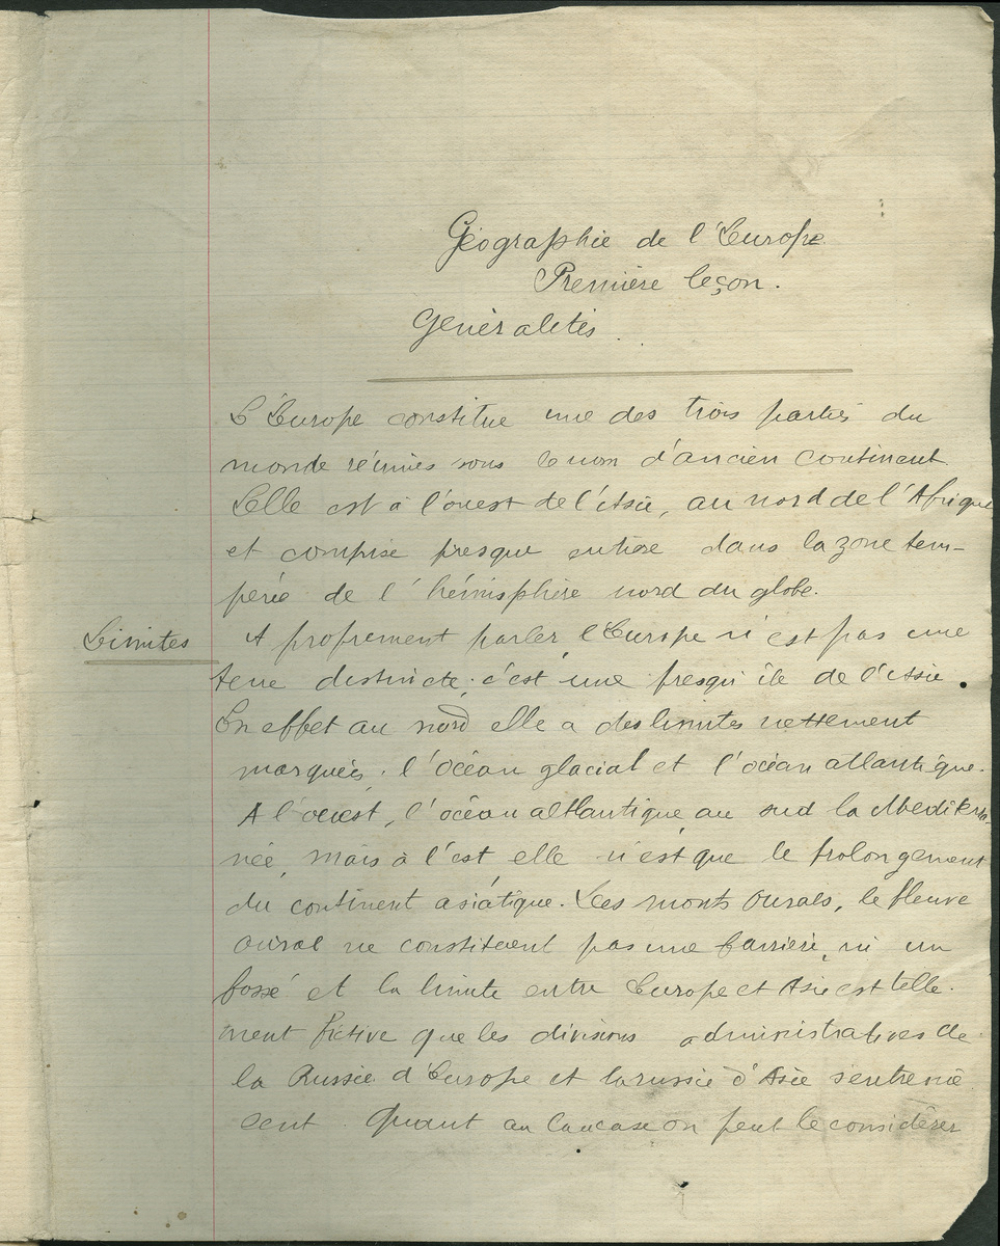 Géographie de l'Europe
Première leçon.
Généralités.
L'Europe constitue une des trois parties du
monde réunies sous le nom d'ancien continent.
Elle est à l'ouest de l'Asie, au nord de l'Afrique
et comprise presque entière dans la zone tem-
pérée de l'hémisphère nord du globe.
Limites
A proprement parler, l'Europe n'est pas une
terre distincte; c'est une presqu'île de l'Asie.
En effet au nord elle a des limites nettement
marquées; l'océan glacial et l'océan atlantique.
A l'ouest, l'océan altlantique, au sud la Méditerra-
née, mais à l'est elle n'est que le prolongement
du continent asiatique. Les monts Ourals, le fleuve
Oural ne constituent pas une barrière, ni un
fossé et la limite entre Europe et Asie est telle-
ment fictive que les divisions administratives de
la Russie d'Europe et la russie d'Asie s'entremê
lent. Quant au Caucase on peut le considérer